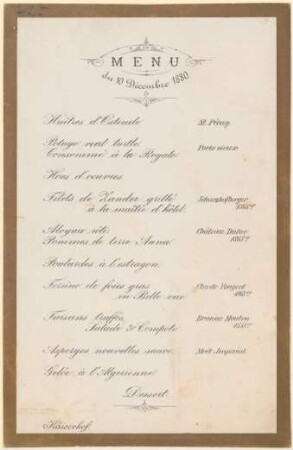 MENU
du 10 Décembre 1880.
Huîtres d'Ostende
St. Péray
Potage real turtle
Consommé à la Royale
Porto vieux
Hors d'oeuvres
Filets de Zander grillé
à la maître d'hôtel
Scharzhofberger
Aloyau rôti
Pommes de terre Anna
Château
Poulardes à l'estragon
Terrine de foies gras
en Belle vue
Clos de Vougeot
Faisans truffés
Salade & Compote
Branne Mouton
Asperges nouvelles sauce
Moët Imperial
Gelée à l'Algerienne
Dessert
Kaiserhof.